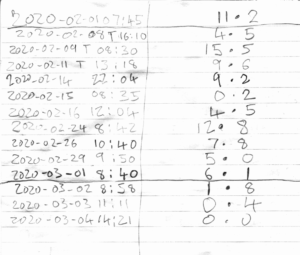 2020-02-01 07:45 11.2
2020-02-08 T 16:10 4.5
2020-02-09 T 08:30 15.5
2020-02-11 T 13:18 9.6
2020-02-14 22:04 9.2
2020-02-15 08:35 0.2
2020-02-16 12:04 4.5
2020-02-24 8:42 12.8
2020-02-26 10:40 7.8
2020-02-29 9:50 5.0
2020-03-01 8:40 6.1
2020-03-02 8:58 1.8
2020-03-03 11:11 0.4
2020-03-04 14:21 0.0